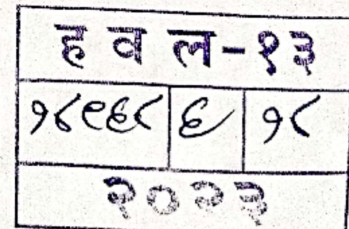 ह व ल-१३
१८९६८ ६ १८
२०२३